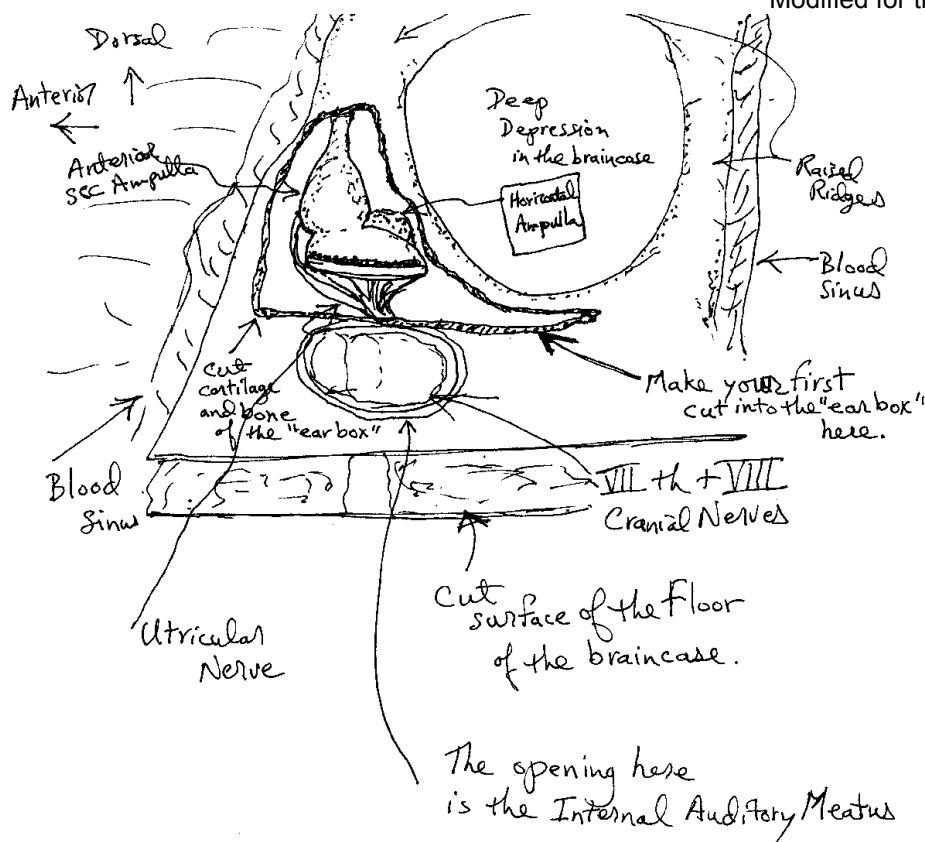 Modified for th
Dorsal
Anterior
Anterior
SCC Ampulla
Deep
Depression
in the braincase
Horizontal
Ampulla
Raised
Ridges
Blood
Sinus
Cut
cartilage
and bone
of the "ear box"
Make your first
cut into the "ear box"
here.
Blood
Sinus
VII th + VIII
Cranial Nerves
Utricular
Nerve
Cut
surface of the Floor
of the braincase.
The opening here
is the Internal Auditory Meatus